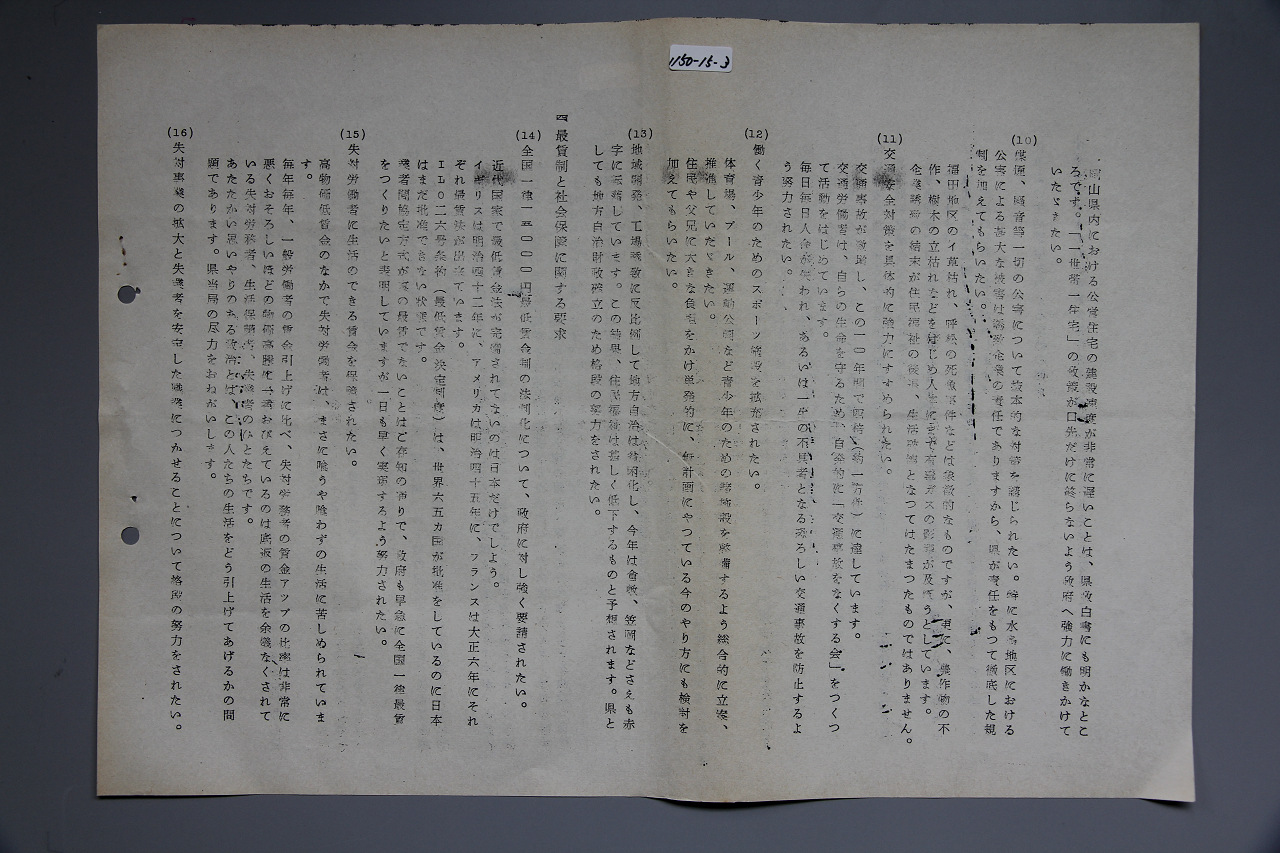 1150-15-3
岡山県内における公営住宅の建設速度が非常に遅いことは、県政白書にも明かなとこ
ろです。「一世帯一住宅」の政策が口先だけに終らないよう政府へ強力に働きかけて
いたゞきたい。
(10) 煤煙、騒音等一切の公害について抜本的な対策を講じられたい。特に水島地区における
公害による甚大な被害は誘致企業の責任でありますから、県が責任をもつて徹底した規
制を加えてもらいたい。
福田地区のイ草枯れ、呼松の死魚事件などは象徴的なものですが、更に、農作物の不
作、樹木の立枯れなどをはじめ人生にまで有毒ガスの影響が及ぼうとしています。
企業誘致の結末が住民福祉の後退、生活破壊となつてはたまつたものではありません。
(11) 交通安全対策を具体的に強力にすすめられたい。
交通事故が激増し、この一〇年間で約倍(約一万件)に達しています。
交通労働者は、自らの生命を守るため、自発的に「交通事故をなくする会」をつくつ
て活動をはじめています。
毎日毎日人命が失われ、あるいは一生の不具者となる恐ろしい交通事故を防止するよ
う努力されたい。
(12) 働く青少年のためのスポーツ施設を拡充されたい。
体育場、プール、運動公園など青少年のための諸施設を整備するよう総合的に立案、
推進していたゞきたい。
住民や父兄に大きな負担をかけ単発的に、無計画にやつている今のやり方にも検討を
加えてもらいたい。
(13) 地域開発、工場誘致に反比例して地方自治は後退化し、今年は倉敷、笠岡などさえも赤
字に転落しています。この結果、住民福祉は著しく低下するものと予想されます。県と
しても地方自治財政確立のため格段の努力をされたい。
四 最賃制と社会保障に関する要求
(14) 全国一律一五〇〇〇円最低賃金制の法制化について、政府に対し強く要請されたい。
近代国家で最低賃金法が完備されてないのは日本だけでしよう。
イギリスは明治四十二年に、アメリカは明治四十五年に、フランスは大正六年にそれ
ぞれ最賃法が出来ています。
ILO二六号条約(最低賃金決定制度)は、世界六五カ国が批准をしているのに日本
はまだ批准できない状態です。
業者間協定方式が真の最賃でないことはご存知の通りで、政府も早急に全国一律最賃
をつくりたいと表明していますが一日も早く実現するよう努力されたい。
(15) 失対労働者に生活のできる賃金を保障されたい。
高物価低賃金のなかで失対労働者は、まさに喰うや喰わずの生活に苦しめられていま
す。
毎年毎年、一般労働者の賃金引上げに比べ、失対労務者の賃金アップの比率は非常に
悪くおそろしいほどの物価高騰に一番おびえているのは底辺の生活を余儀なくされて
いる失対労務者、生活保護者、失業者のひとたちです。
あたたかい思いやりのある政治とは、この人たちの生活をどう引上げてあげるかの問
題であります。県当局の尽力をおねがいします。
(16) 失対事業の拡大と失業者を安定した職業につかせることについて格段の努力をされたい。